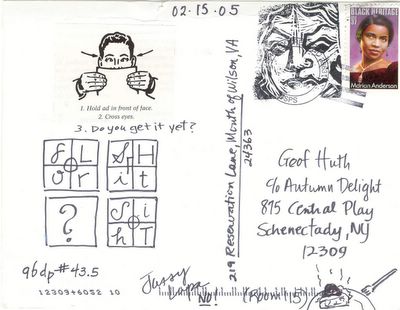 02.15.05
1. Hold ad in front of face.
2. Cross eyes.
3. Do you get it yet?
S H
i t
?
S i
h T
qbdp #43.5
12309+6052 10
219 Reservation Lane, Mouth of Wilson, VA
24363
USPS
BLACK HERITAGE
37
Marian Anderson
Geof Huth
c/o Autumn Delight
875 Central Play
Schenectady, NY
12309
NO!
(Room 115)